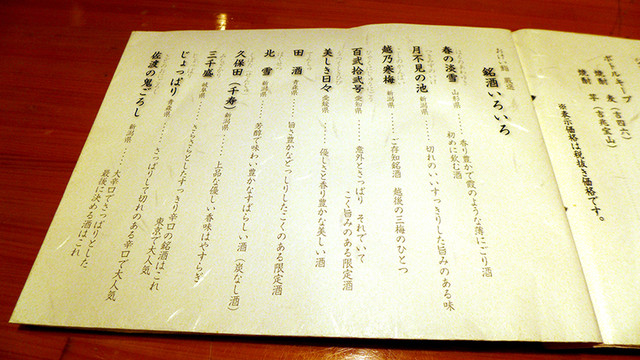 ボールキープ
焼酎 麦（吉四六）
焼酎 芋（吉兆宝山）
※表示価格は税抜き価格です。
おけい鮨 厳選
銘酒いろいろ
春の淡雪 山形県……香り豊かで霞のような薄にごり酒
初めに飲む酒
月不見の池 新潟県……切れのいいすっきりした旨みのある味
越乃寒梅 新潟県……ご存知銘酒 越後の三梅のひとつ
百弐拾弐号 愛知県……意外とさっぱり それでいて
こく旨みのある限定酒
美しき日々 愛媛県……優しさと香り豊かな美しい酒
田酒 青森県……旨さ豊かなどっしりしたこくのある限定酒
北雪 新潟県……芳醇で味わい豊かなすばらしい酒（炭なし酒）
久保田（千寿）新潟県……上品な優しい香味はやすらぎ
三千盛 岐阜県……さらさらとしたすっきり辛口の銘酒はこれ
東京で大人気
じょっぱり 青森県……さっぱりして切れのある辛口で大人気
佐渡の鬼ごろし 新潟県……大辛口でさっぱりとした
最後に決める酒はこれ